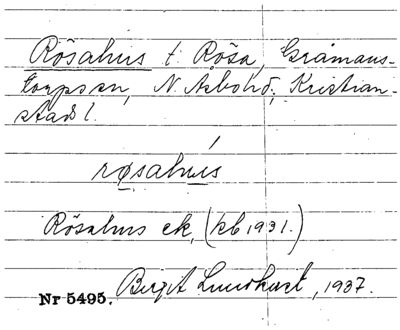 Rösahus t. Rösa, Gråmans-
torps sn, N. Åsbo hd, Kristian-
stads l.
røsahus
Rösahus ek. (kb 1931.)
Nr 5495. Birgit Lundkvist, 1937.